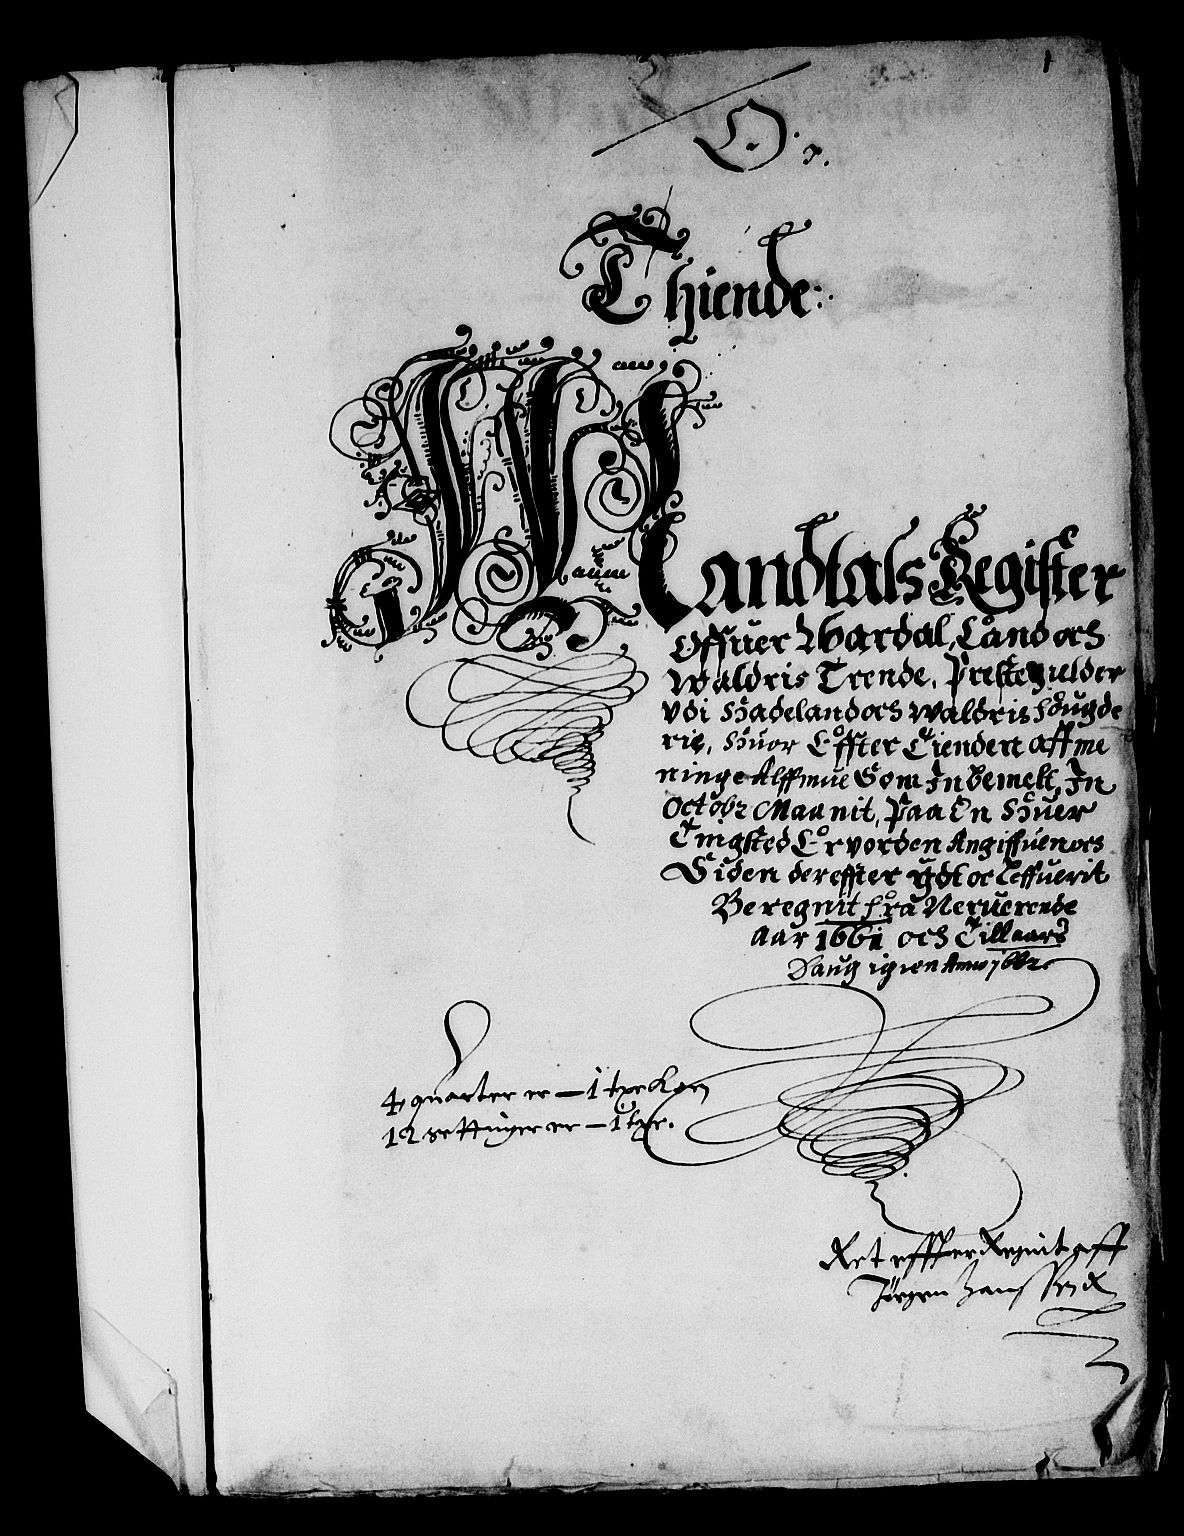 1
O. 7.
Thiende:
Mandtals Register
Offuer Wardal, Land och
Waldris Trende, Prestegielder
Vdi Hadeland och Waldris Fougde
rie, Huor Effter Tienden aff me
ninge Alffmue Som Inbemelt, In
Octobr Maanit, Paa En Huer
Tingsted Er vorden Angiffuen och
Siden dereffter ydt oc Leffuerit
Beregnit fra Neruerende
Aar 1661 och Till aars
Daug igien Anno 1662
4 quarter er — 1 tøe Korn
12 settinger er — 1 tøe.
Ret effter Regnit aff
Jørgen Hanssen